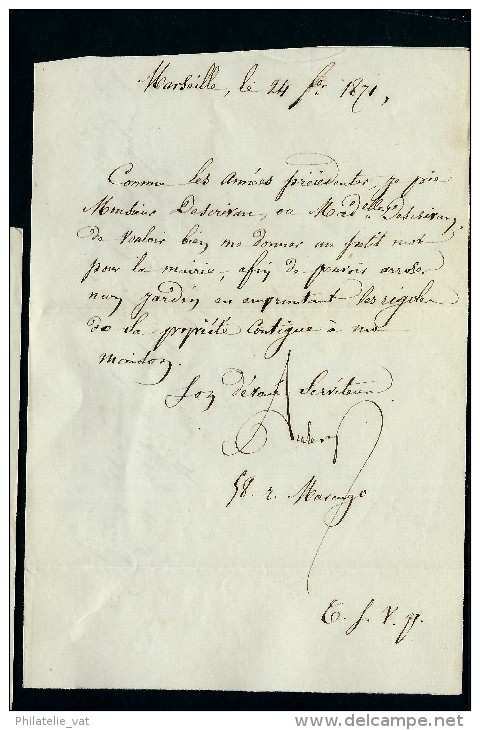 Marseille, le 24 fer 1871,
Comme les années précédentes, je prie
Monsieur Descrivan, ou Madelle Descrivan,
de vouloir bien me donner un petit mot
pour la mairie, afin de pouvoir arroser
mon jardin en empruntant les rigoles
de sa propriété contigue à ma
maison.
Son dévoué Serviteur
Aubert
58. r. Marengo
T. S. V. P.
Philatelie_vat
www.delcampe.net